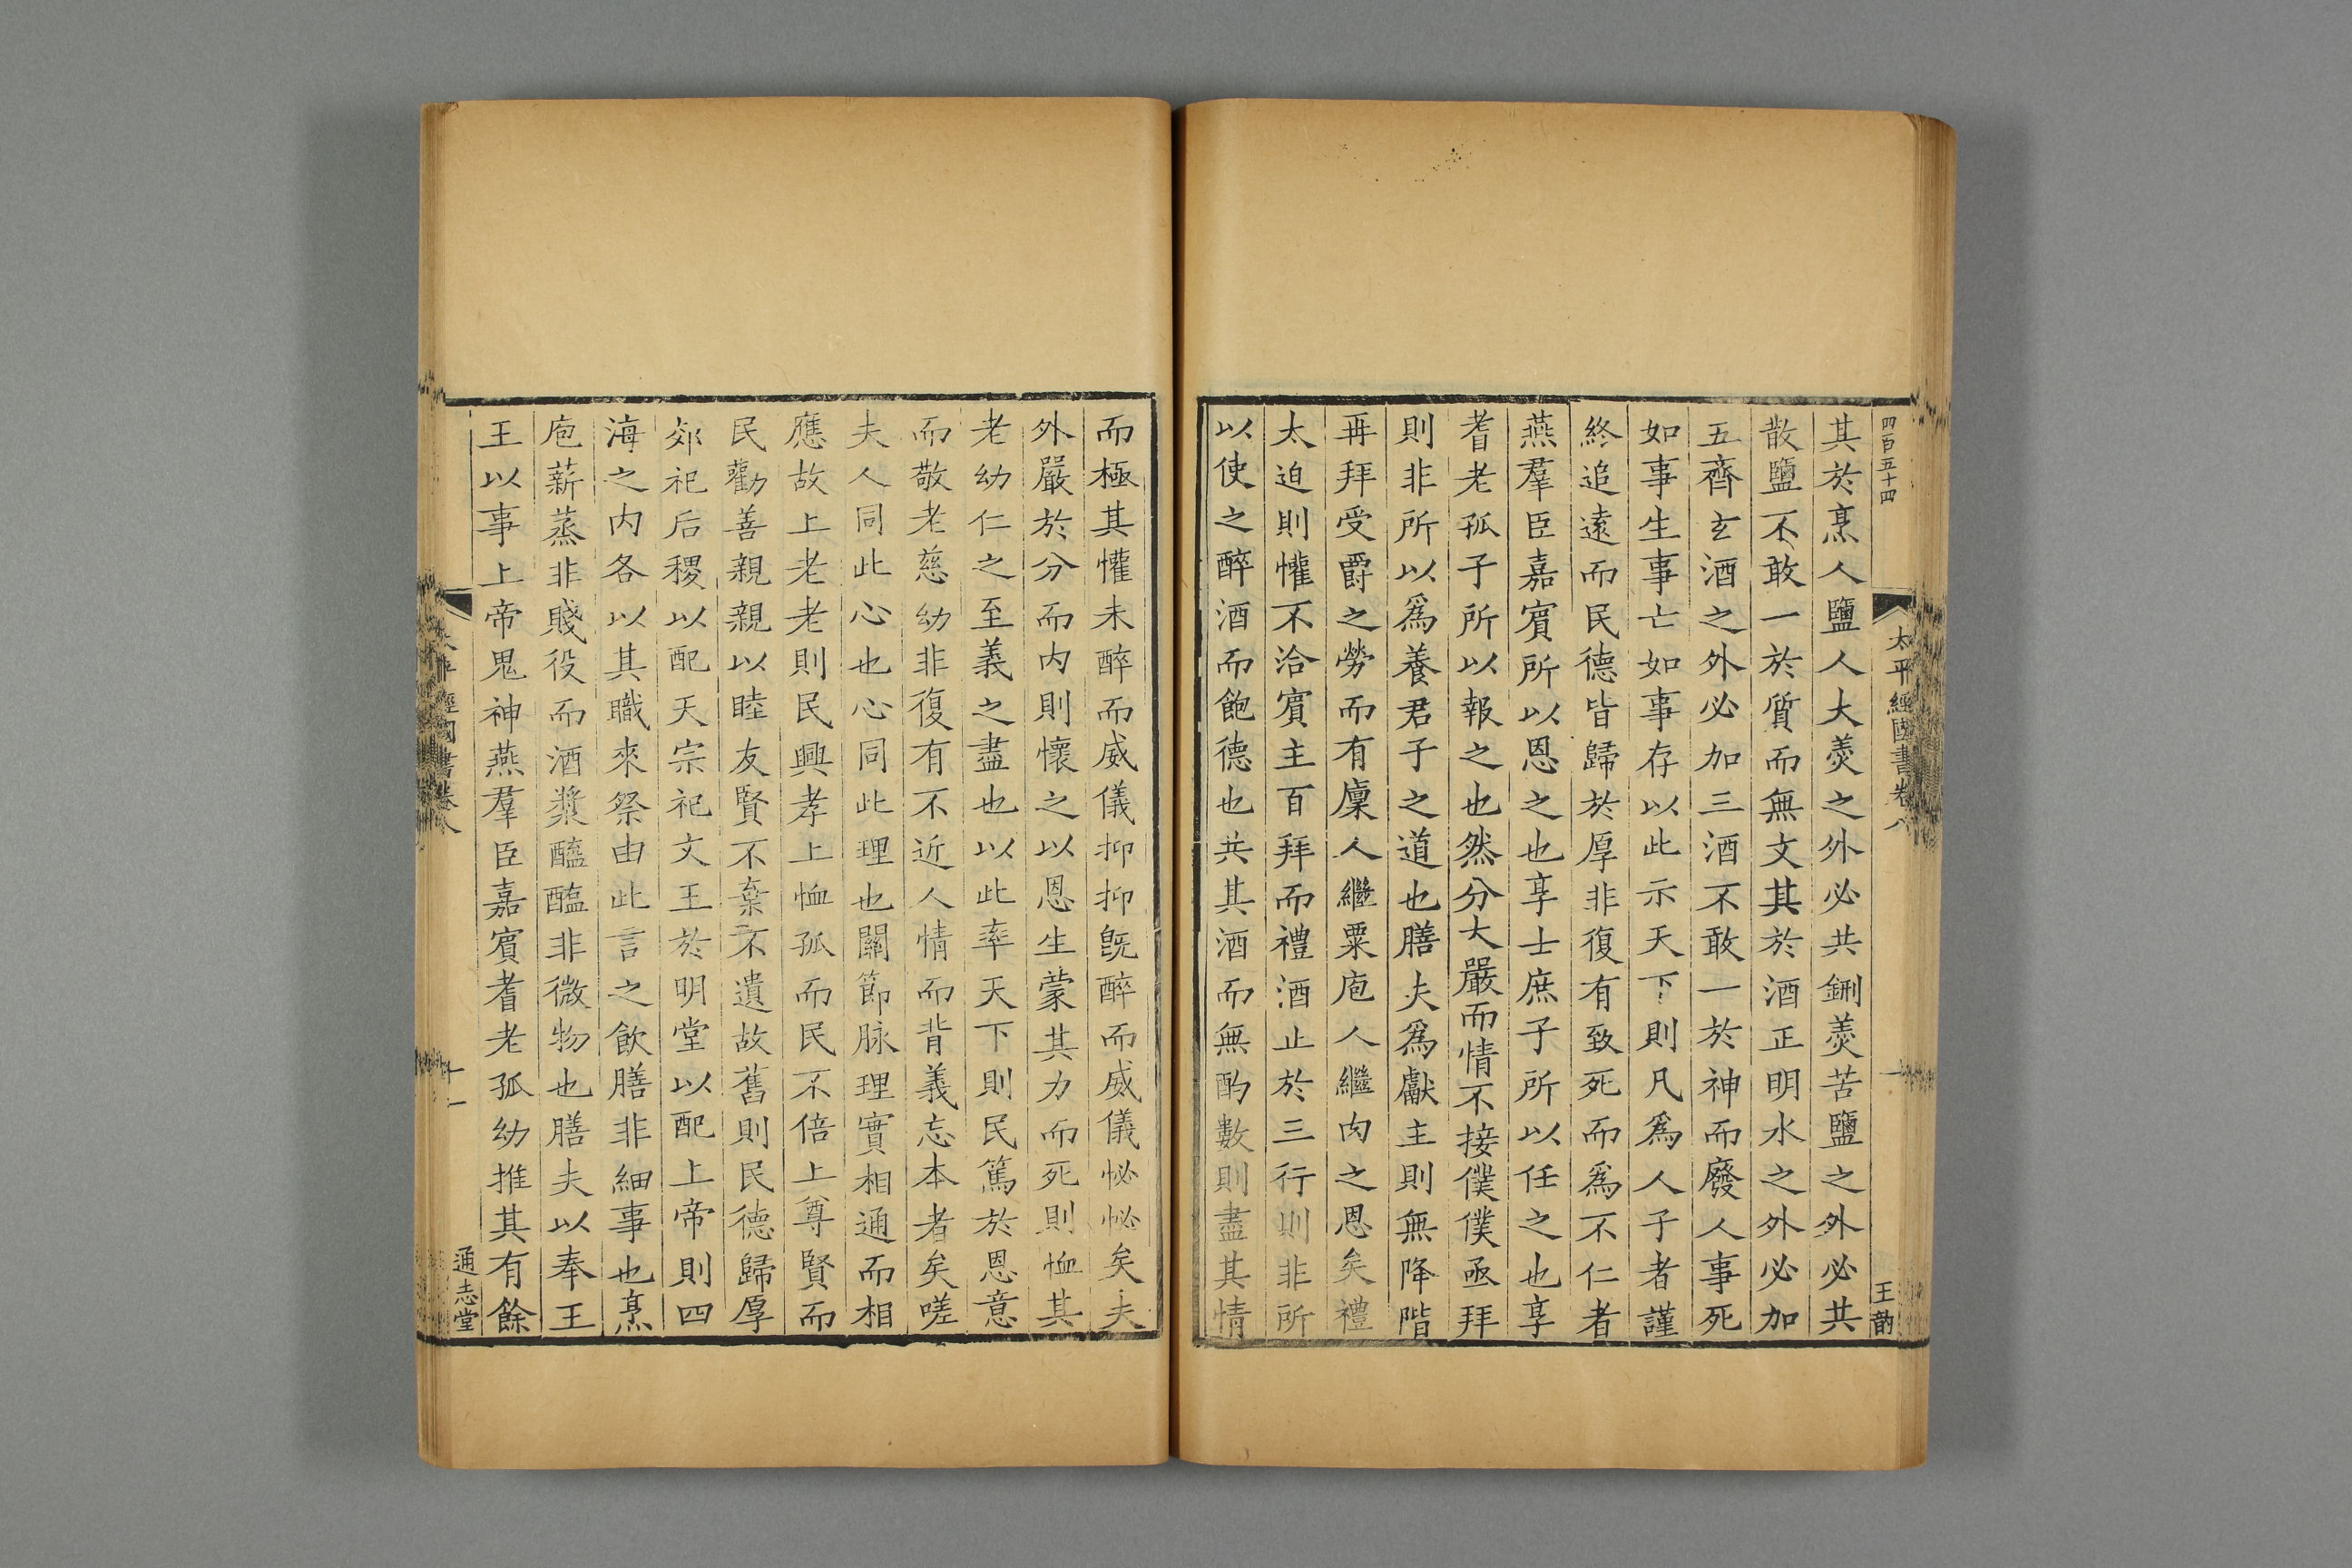 四百五十四
太平經國書卷八
王
其於烹人鹽人大羹之外必共鉶羹苦鹽之外必共
散鹽不敢一於質而無文其於酒正明水之外必加
五齊玄酒之外必加三酒不敢一於神而廢人事死
如事生事亡如事存以此示天下則凡爲人子者謹
終追遠而民德皆歸於厚非復有致死而爲不仁者
燕羣臣嘉賓所以恩之也享士庶子所以任之也享
耆老孤子所以報之也然分大嚴而情不接僕僕亟拜
則非所以爲養君子之道也膳夫爲獻主則無降階
再拜受爵之勞而有廩人繼粟庖人繼肉之恩矣禮
太迫則懽不洽賓主百拜而禮酒止於三行則非所
以使之醉酒而飽德也共其酒而無酌數則盡其情
而極其懽未醉而威儀抑抑旣醉而威儀怭怭矣夫
外嚴於分而内則懷之以恩生蒙其力而死則恤其
老幼仁之至義之盡也以此率天下則民篤於恩意
而敬老慈幼非復有不近人情而背義忘本者矣嗟
夫人同此心也心同此理也關節脉理實相通而相
應故上老老則民興孝上恤孤而民不倍上尊賢而
民勸善親親以睦友賢不棄不遺故舊則民德歸厚
郊祀后稷以配天宗祀文王於明堂以配上帝則四
海之内各以其職來祭由此言之飲膳非細事也烹
庖薪蒸非賤役而酒漿醯醢非微物也膳夫以奉王
王以事上帝鬼神燕羣臣嘉賓耆老孤幼推其有餘
太平經國書卷八
十一
通志堂